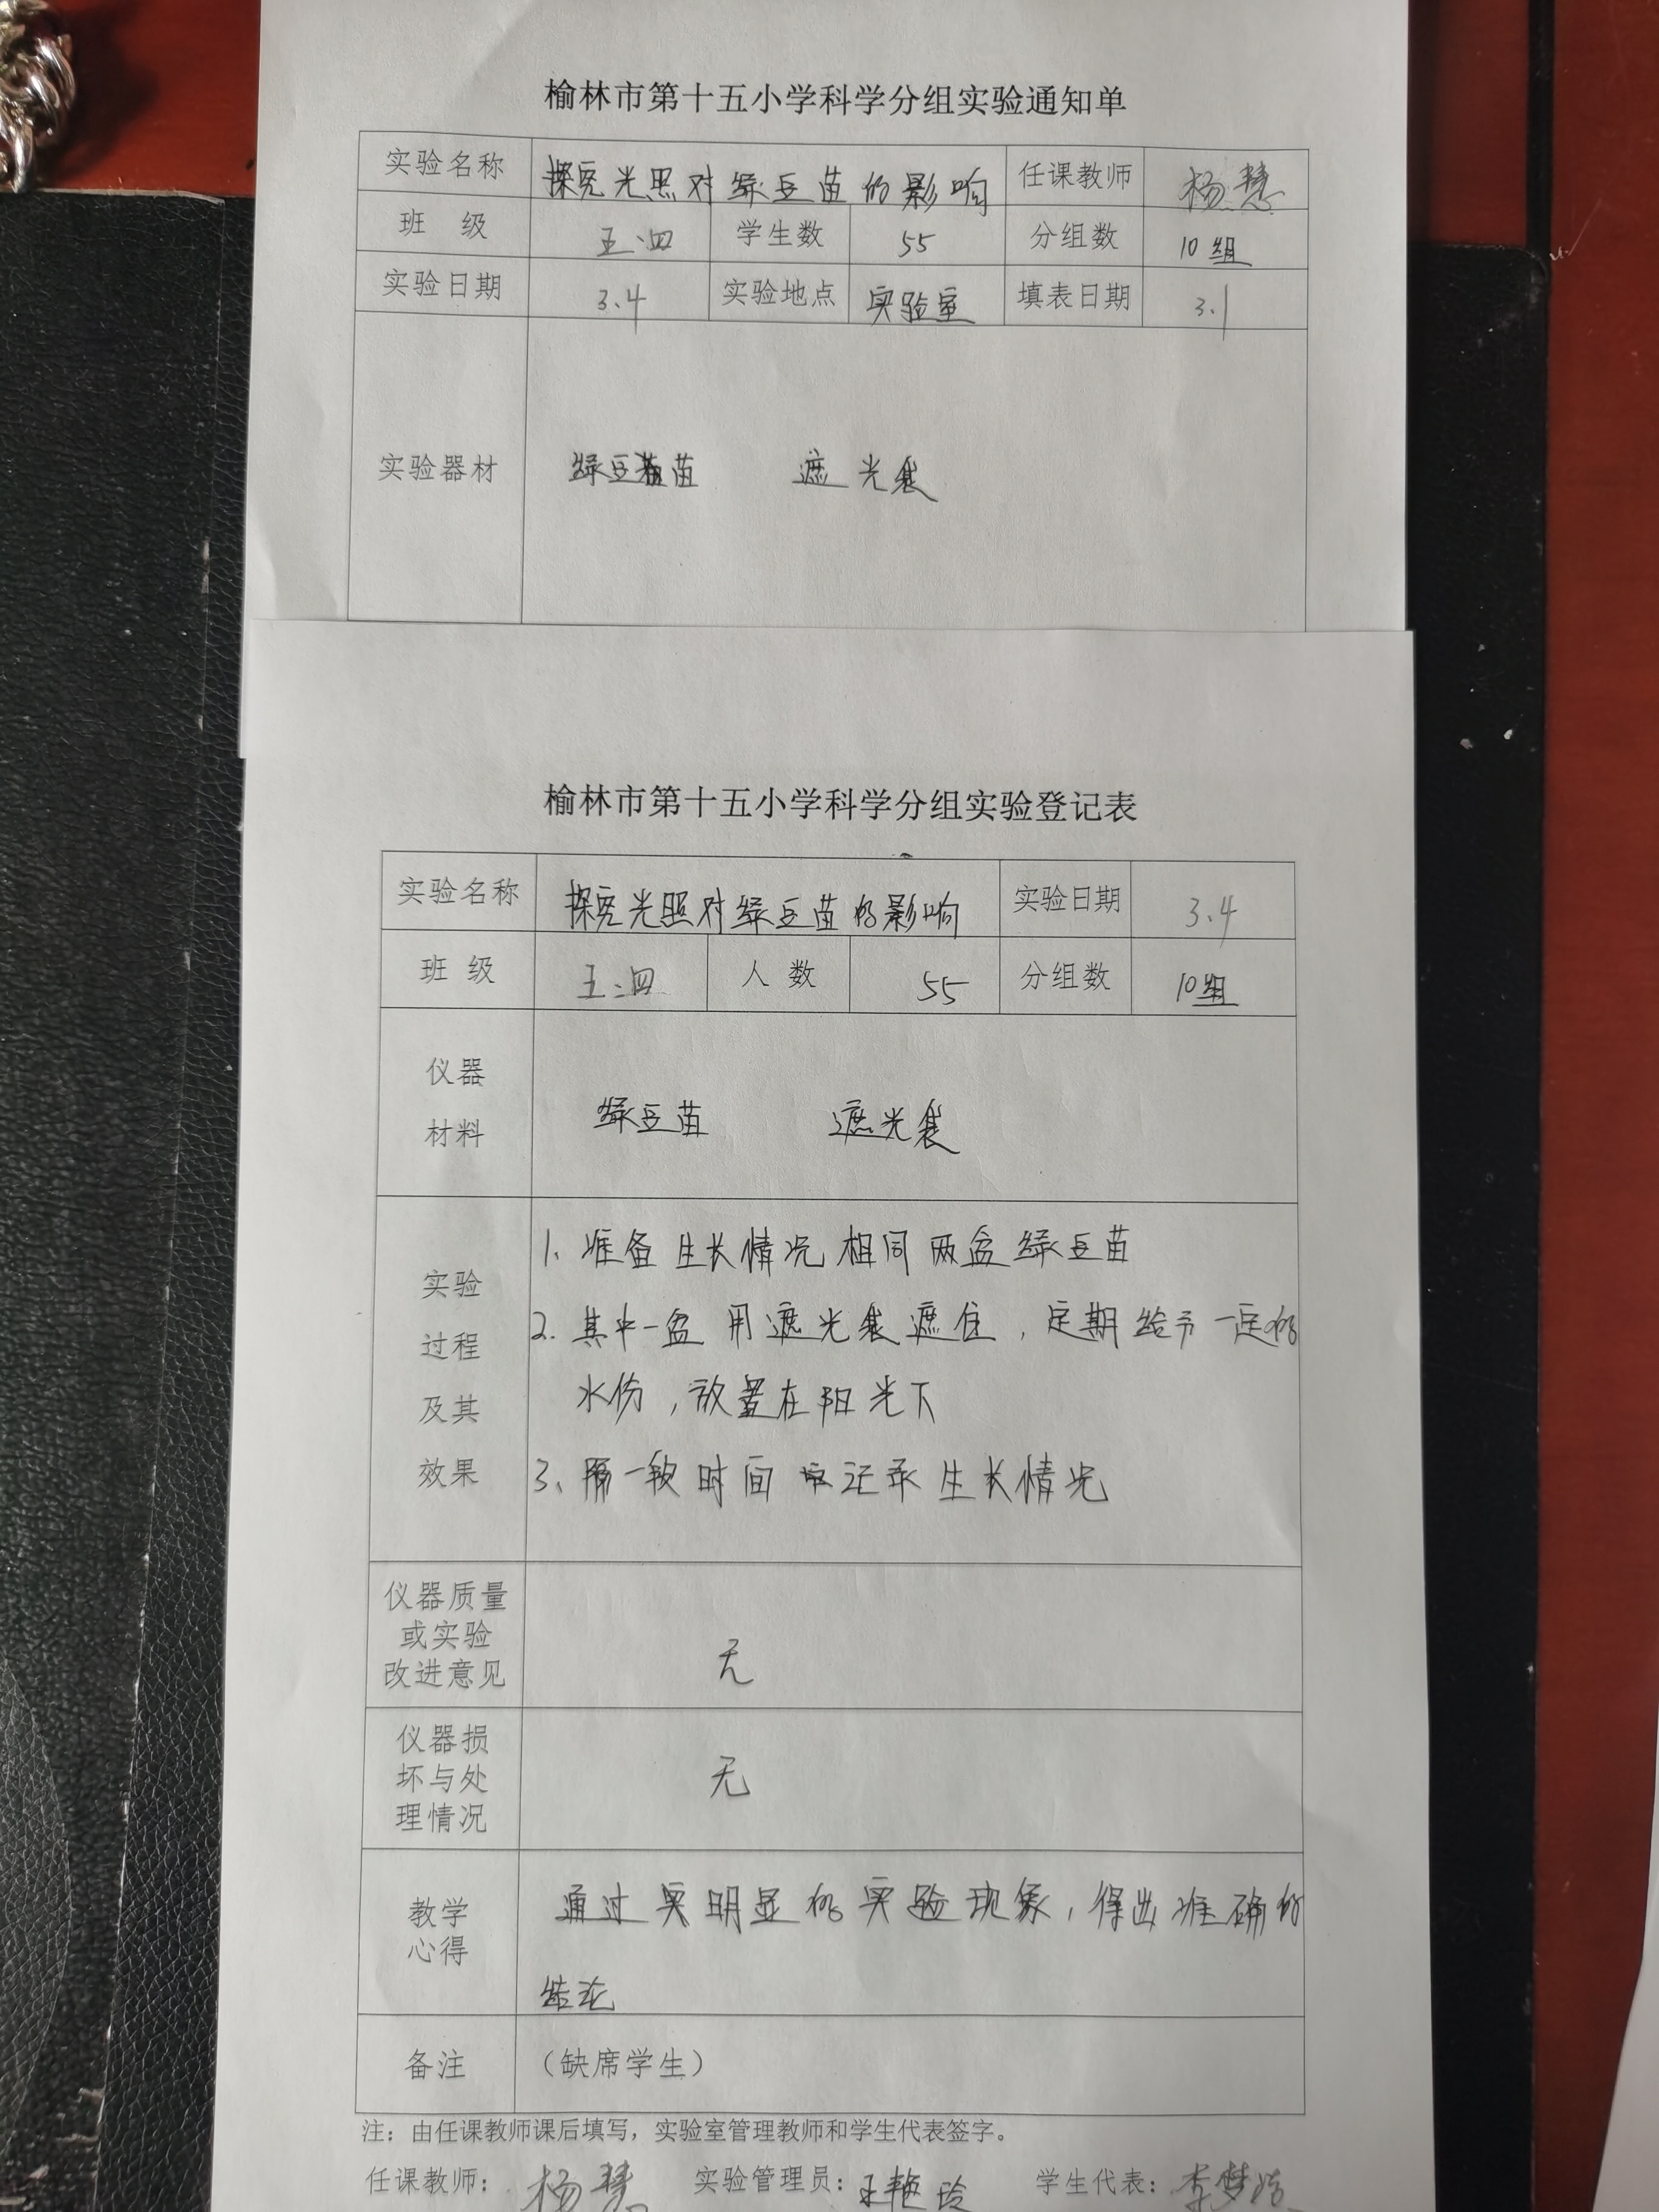 榆林市第十五小学科学分组实验通知单
实验名称 探究光照对绿豆苗的影响 任课教师 杨慧
班 级 五.四 学生数 55 分组数 10组
实验日期 3.4 实验地点 实验室 填表日期 3.1
实验器材 绿豆苗 遮光袋
榆林市第十五小学科学分组实验登记表
实验名称 探究光照对绿豆苗的影响 实验日期 3.4
班 级 五.四 人 数 55 分组数 10组
仪器
材料
绿豆苗 遮光袋
实验
过程
及其
效果
1. 准备生长情况相同两盆绿豆苗
2. 其中一盆用遮光袋遮住，定期给予一定的
水份，放置在阳光下
3、隔一段时间记录生长情况
仪器质量
或实验
改进意见
无
仪器损
坏与处
理情况
无
教学
心得
通过明显的实验现象，得出准确的
结论
备注 （缺席学生）
注：由任课教师课后填写，实验室管理教师和学生代表签字。
任课教师：杨慧 实验管理员：王艳玲 学生代表：李梦